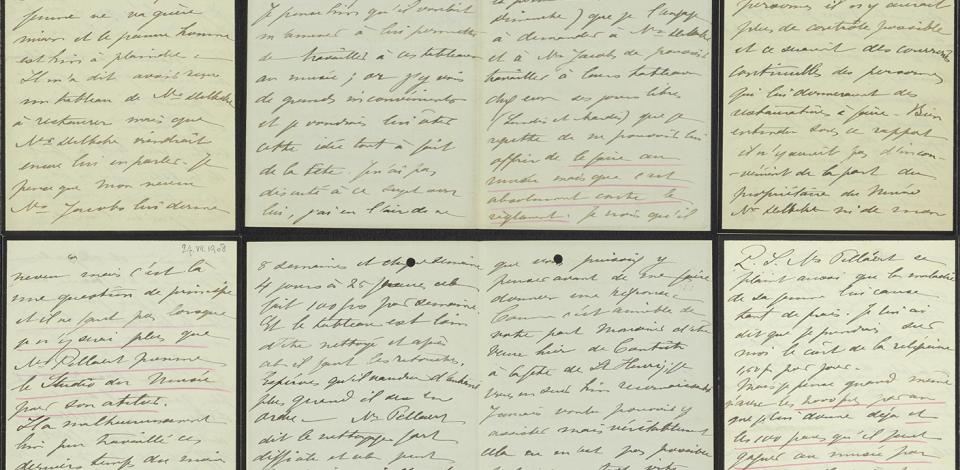 femme ne va guère
mieux et le pauvre homme
est bien à plaindre.
Il m'a dit avoir reçu
un tableau de Mr Delbeke
à restaurer mais que
Mr Delbeke viendrait
encore lui en parler. Je
pense que mon neveu
Mr Jacobs lui donne
Je pense bien qu'il voudrait
m'amener à lui permettre
de travailler à ces tableaux
au musée; or j'y vois
de grands inconvénients
et je voudrais lui ôter
cette idée tout à fait
de la tête. Je n'ai pas
discuté à ce sujet avec
lui, j'ai eu l'air de ne
Dimanche) que je l'engage
à demander à Mr Delbeke
et à Mr Jacobs de pouvoir
travailler à leurs tableaux
chez eux ses jours libres
(Lundis et Mardis) que je
regrette de ne pouvoir lui
offrir de le faire au
musée mais que c'est
absolument contre le
règlement. Je crois qu'il
personnes il n'y aurait
plus de contrôle possible
et ce serait des courses
continuelles des personnes
qui lui donneraient des
restaurations à faire. Bien
entendu sous ce rapport
il n'y aurait pas d'incon-
vénient de la part du
propriétaire du Musée
Mr Delbeke ni de mon
27.VII.1908
neveu mais c'est là
une question de principe
et il ne faut pas lorsque
je n'y serai plus que
Mr Pillaert prenne
le Studio du Musée
pour son atelier.
Il a malheureusement
bien peu travaillé ces
derniers temps du mois
8 semaines et chaque semaine
4 jours à 25 francs cela
fait 100 frs par semaine.
Et le tableau est loin
d'être nettoyé et après
cela il faut les retouches.
Espérons qu'il vaudra d'autant
plus quand il sera en
ordre. Mr Pillaert
dit le nettoyage fort
difficile et cela peut
que vous puissiez y
penser avant de me faire
donner une réponse.
Comme c'est aimable de
votre part Monsieur d'être
venu hier
à la fête de St Henri, je
vous en suis bien reconnaissante
Jamais vous pouviez y
assister mais véritablement
cela ne m'est pas possible
P.S. Mr Pillaert se
plaint aussi que la maladie
de sa femme lui cause
tant de frais. Je lui ai
dit que je prendrai sur
moi le coût de la religieuse
par jour.
Mais je pense quand même
les 2000 frs par an
que je lui donne déjà et
les 100 francs qu'il peut
gagner au musée par